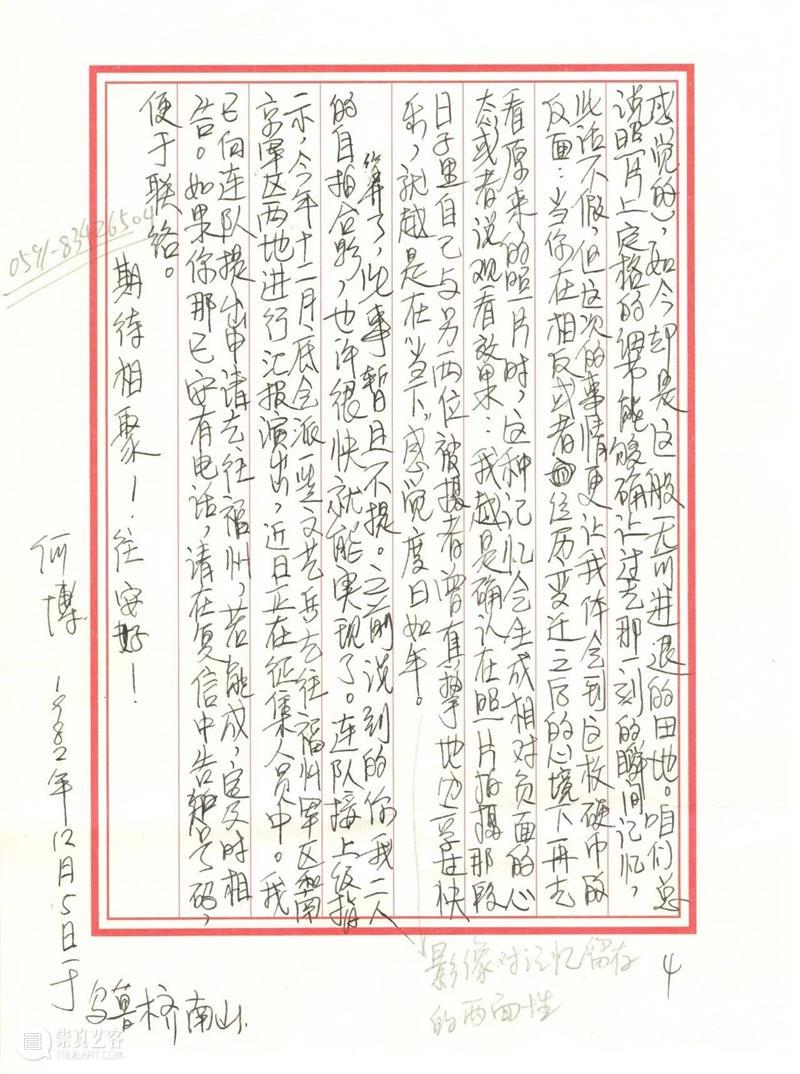 感觉的），如今却是这般无以进退的田地。咱们总
说照片上定格的细节能够确认过去那一刻的瞬间记忆，
此话不假，但这次的事情更让我体会到这枚硬币的
反面：当你在相反或者经历变迁之后的心境下再去
看原来的照片时，这种记忆会生成相对负面的心
态或者说观看效果：我越是确认在照片拍摄那段
日子里自己与另两位被摄者曾真挚地在快
乐，就越是在“当下”感觉度日如年。
算了，此事暂且不提。之前说到的你我二人
的自拍合影，也许很快就能实现了。连队接上级指
示，今年十二月底会派一些文艺兵去往福州军区和南
京军区两地进行汇报演出，近日正在征集人员中。我
已向连队提出申请去往福州，若能成，定及时相
告。如果你那已安有电话，请在复信中告知号码，
便于联络。
0591-83426504
期待相聚！祝安好！
何博 1982年12月5日于
乌鲁木齐南山.
影像对记忆留存
的两面性
4
崇真艺客
TRUEART.COM